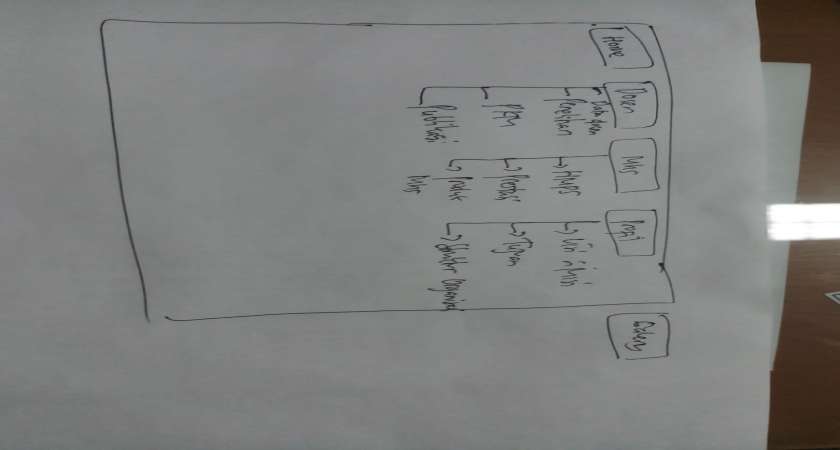 Home
Dosen
Data dosen
Penelitian
PKM
Publikasi
Mhs
HMPS
Prestasi
Produk
Mhs
Profil
Visi & Misi
Tujuan
Struktur Organisasi
Galery